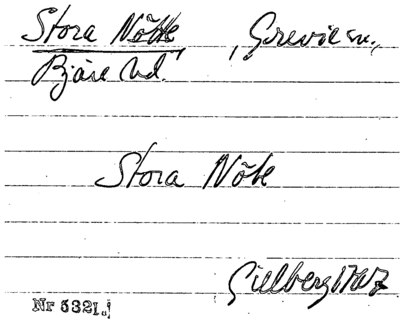 Stora Nötte, Grevie sn.,
Bjäre hd.
Stora Nöte
Gillberg 1767
Nr 5321.